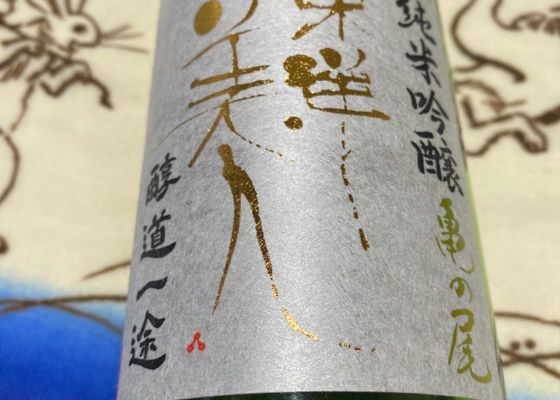 純米吟醸 亀の尾
東洋
美人
醇道一途